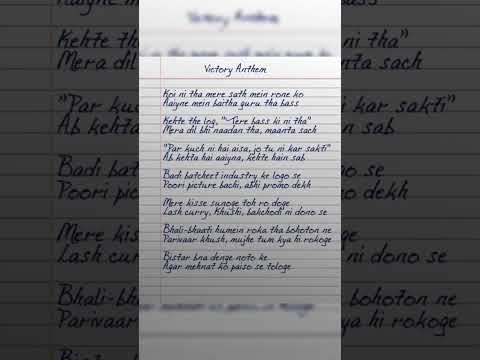 Victory Anthem
Koi ni tha mere sath mein rone ko
Aaiyne mein baitha guru tha bass
Kehte the log, "Tere bass ki ni tha"
Mera dil bhi naadan tha, maanta sach
"Par kuch ni hai aisa, jo tu ni kar sakti"
Ab kehta hai aaiyna, kehte hain sab
Badi batcheet industry ke logo se
Poori picture bachi, abhi promo dekh
Mere kisse sunoge toh ro doge
Lash curry, Khushi, bakchodi ni dono se
Bhali-bhaati humein roka tha bohoton ne
Parivaar khush, mujhe tum kya hi rokoge
Bistar bna denge noto ke
Agar mehnat ko paiso se tologe